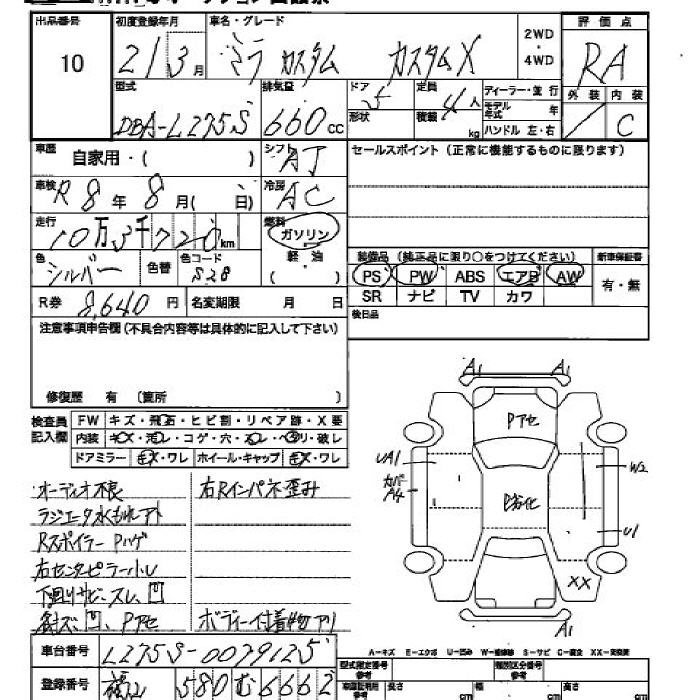 出品番号 初度登録年月 車名・グレード 評価点
10 21 3月 ミラ カスタム カスタムX 2WD・4WD RA
型式 排気量 ドア 定員 ディーラー・並行 外装 内装
DBA-L275S 660cc 5 4人 モデル年式 年 / C
形状 積載 kg ハンドル 左・右
車歴 自家用・( ) シフト AT セールスポイント(正常に機能するものに限ります)
車検 R8年8月( 日) 冷房 AC
走行 10万3千720km 燃料 ガソリン
軽油
( )
色 シルバー 色替 色コード S28
装備品(純正品に限り○をつけてください) 新車保証書
PS PW ABS エアB AW 有・無
SR ナビ TV カワ
R券 8,640円 名変期限 月 日 後日品
注意事項申告欄(不具合内容等は具体的に記入して下さい)
修復歴 有 〔箇所 〕
検査員記入欄 FW キズ・飛石・ヒビ割・リペア跡・X要
内装 キズ・汚レ・コゲ・穴・ ・ ・破レ
ドアミラー キズ・ワレ ホイール・キャップ キズ・ワレ
オーディオ不良 右Rインパネ歪み
ラジエータ水もれアト
Rスポイラー Pハゲ
右センタピラー小U
下回りサビ・スレ、凹
P アセ ボディー付着物アリ
A1 A1
Pアセ
UA1
カバ
A4
P劣化
W2
U1
XX
A1
A-キズ E-エクボ U-凹み S-サビ C-腐食
車台番号 L275S-0079125
登録番号 580 む 6662
型式指定番号 類別区分番号
長さ 幅 高さ
cm cm cm